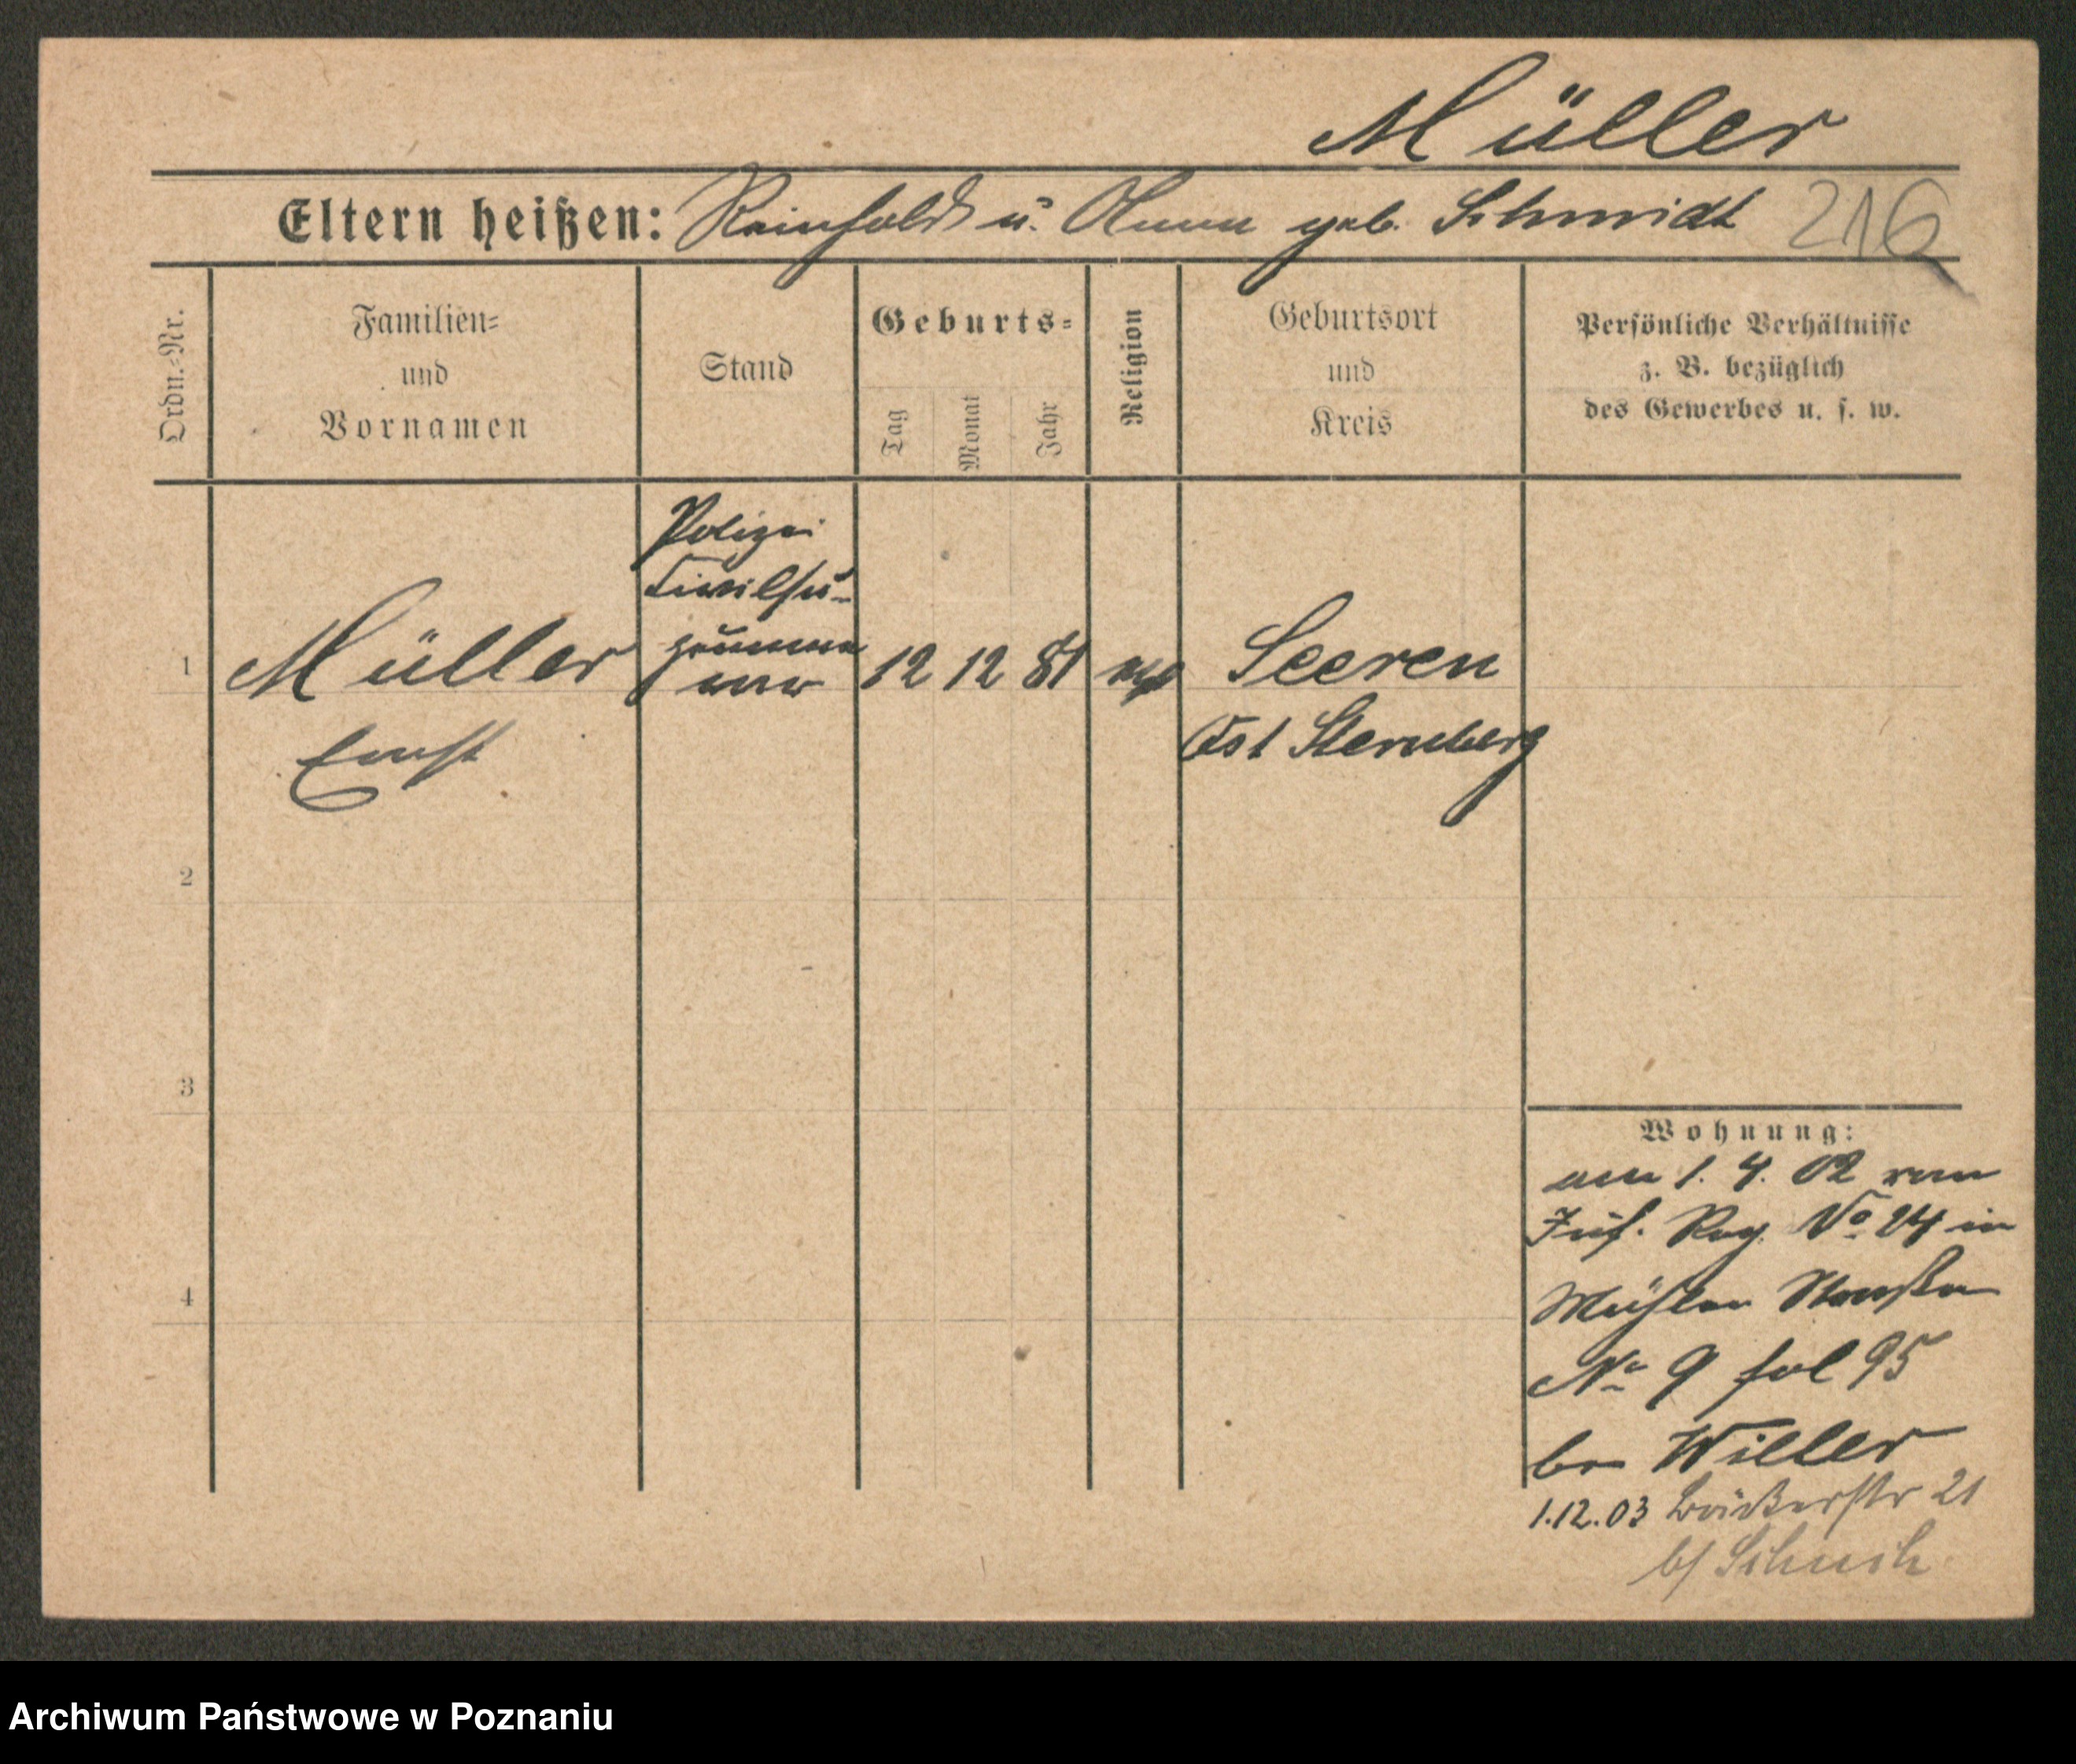 Müller
Eltern heißen: Reinhold u. Anna geb. Schmidt 216
Ordn.-Nr.
Familien-
und
Vornamen
Stand
Geburts-
Tag
Monat
Jahr
Religion
Geburtsort
und
Kreis
Persönliche Verhältnisse
z. B. bezüglich
des Gewerbes u. s. w.
Polizei
1 Müller 12 12 81 Seeren
Ernst Ost Sternberg
2
3
4
Wohnung:
am 1. 4. 02 vom
Inf. Reg. No 24 in
Mühlen Straße
No 9 fol 95
bei Willer
1.12.03 21
b/
Archiwum Państwowe w Poznaniu